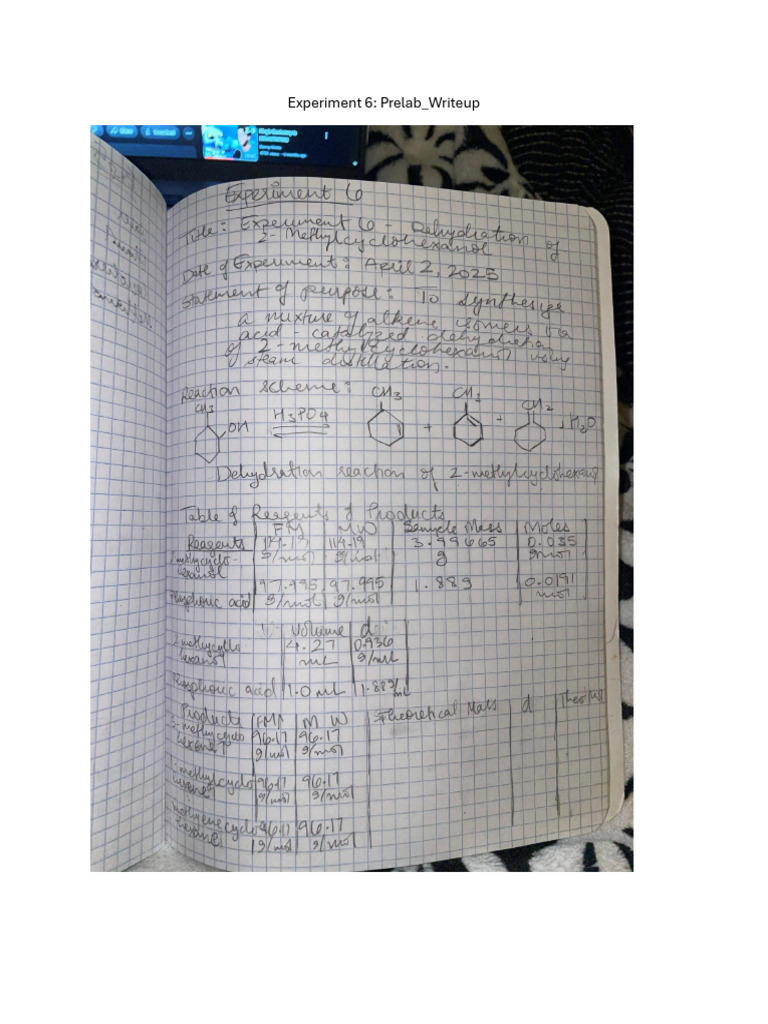 Experiment 6: Prelab_Writeup
Experiment 6
Title: Experiment 6 - Dehydration of
2-Methylcyclohexanol
Date of Experiment: April 2, 2025
Statement of purpose: To synthesize
a mixture of alkene isomers via
acid-catalyzed dehydration
of 2-methylcyclohexanol using
steam distillation.
Reaction scheme:
CH3 CH3 CH2
CH3 OH H3PO4 + + + H2O
Dehydration reaction of 2-methylcyclohexanol
Table of Reagents & Products
FM MW Sample Mass Moles
Reagents 114.19 114.19 3.99665 0.035
2-methylcyclo- g/mol g/mol g mol
hexanol
97.995 97.995 1.88g 0.0191
Phosphoric acid g/mol g/mol mol
Volume d
2-methylcyclo 4.27 0.936
hexanol mL g/mL
Phosphoric acid 1.0 mL 1.88g/mL
Products FM M W Theoretical Mass d
methylcyclo 96.17 96.17
hexene g/mol g/mol
methylcyclo 96.17 96.17
hexene g/mol g/mol
methylenecyclo 96.17 96.17
hexane g/mol g/mol